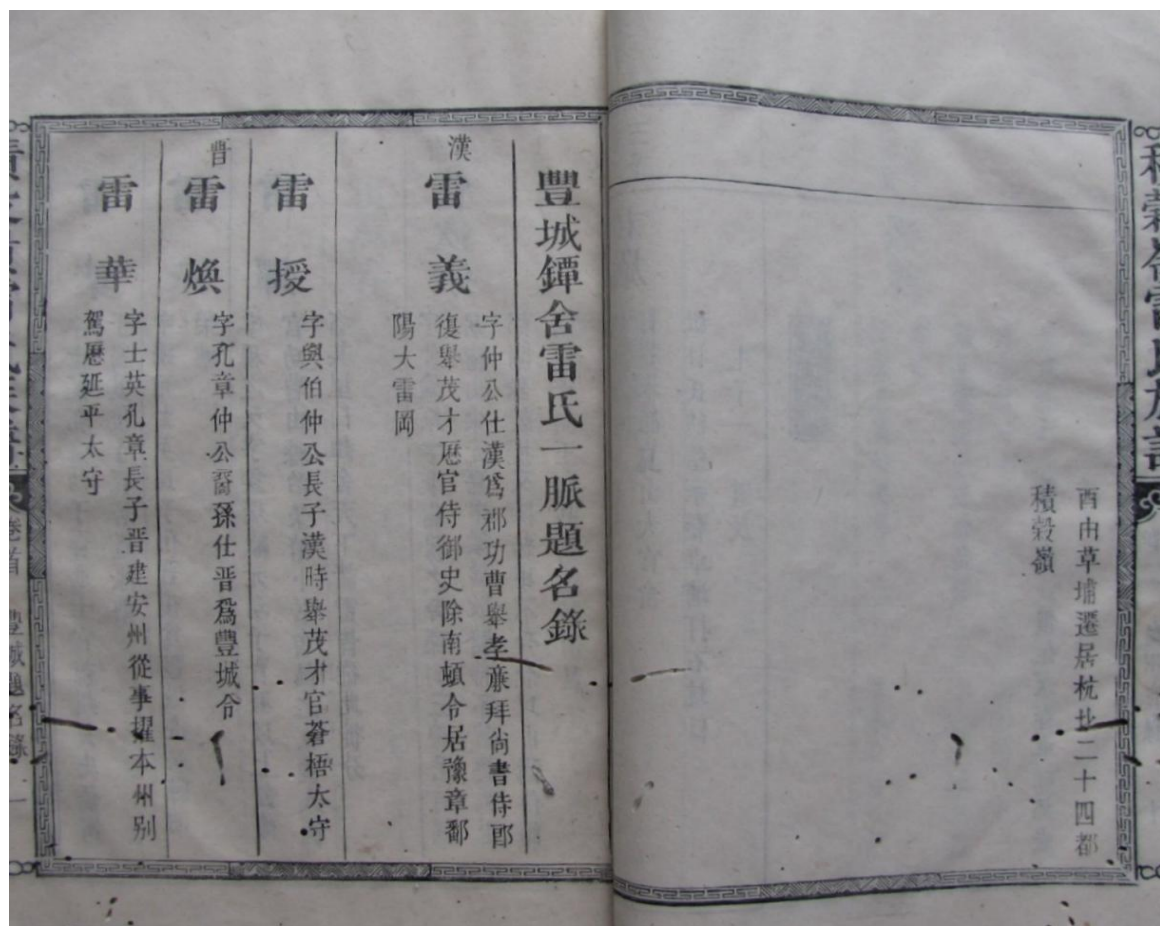 積穀嶺雷氏族譜
酉由草埔遷居杭北二十四都
積穀嶺
豐城鐔舍雷氏一脈題名錄
漢
雷義
字仲公仕漢爲郡功曹舉孝蕭拜尙書侍郎
復舉茂才歷官侍御史除南頓令居豫章鄱
陽大雷岡
雷授
字與伯仲公長子漢時舉茂才官蒼梧太守
晋
雷煥
字孔章仲公裔孫仕晋爲豐城令
雷華
字士英孔章長子晋建安州從事擢本州别
駕歷延平太守
卷首 豐城題名錄 一